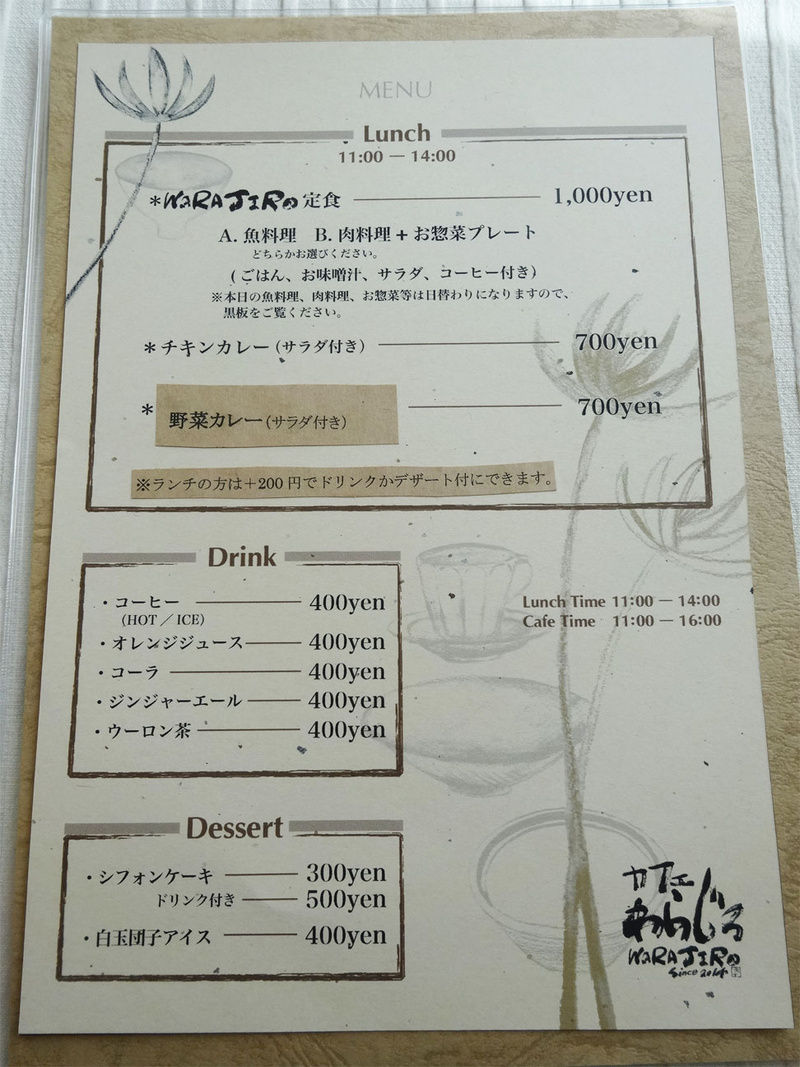 MENU
Lunch
11:00 — 14:00
*WaRAJIRO 定食 1,000yen
A. 魚料理 B. 肉料理+お惣菜プレート
どちらかお選びください。
(ごはん、お味噌汁、サラダ、コーヒー付き)
※本日の魚料理、肉料理、お惣菜等は日替わりになりますので、
黒板をご覧ください。
*チキンカレー(サラダ付き) 700yen
* 野菜カレー(サラダ付き) 700yen
※ランチの方は+200円でドリンクかデザート付にできます。
Drink
・コーヒー 400yen
(HOT/ICE)
・オレンジジュース 400yen
・コーラ 400yen
・ジンジャーエール 400yen
・ウーロン茶 400yen
Lunch Time 11:00 — 14:00
Cafe Time 11:00 — 16:00
Dessert
・シフォンケーキ 300yen
ドリンク付き 500yen
・白玉団子アイス 400yen
カフェ
わらじろ
WaRAJIRO
since 2014